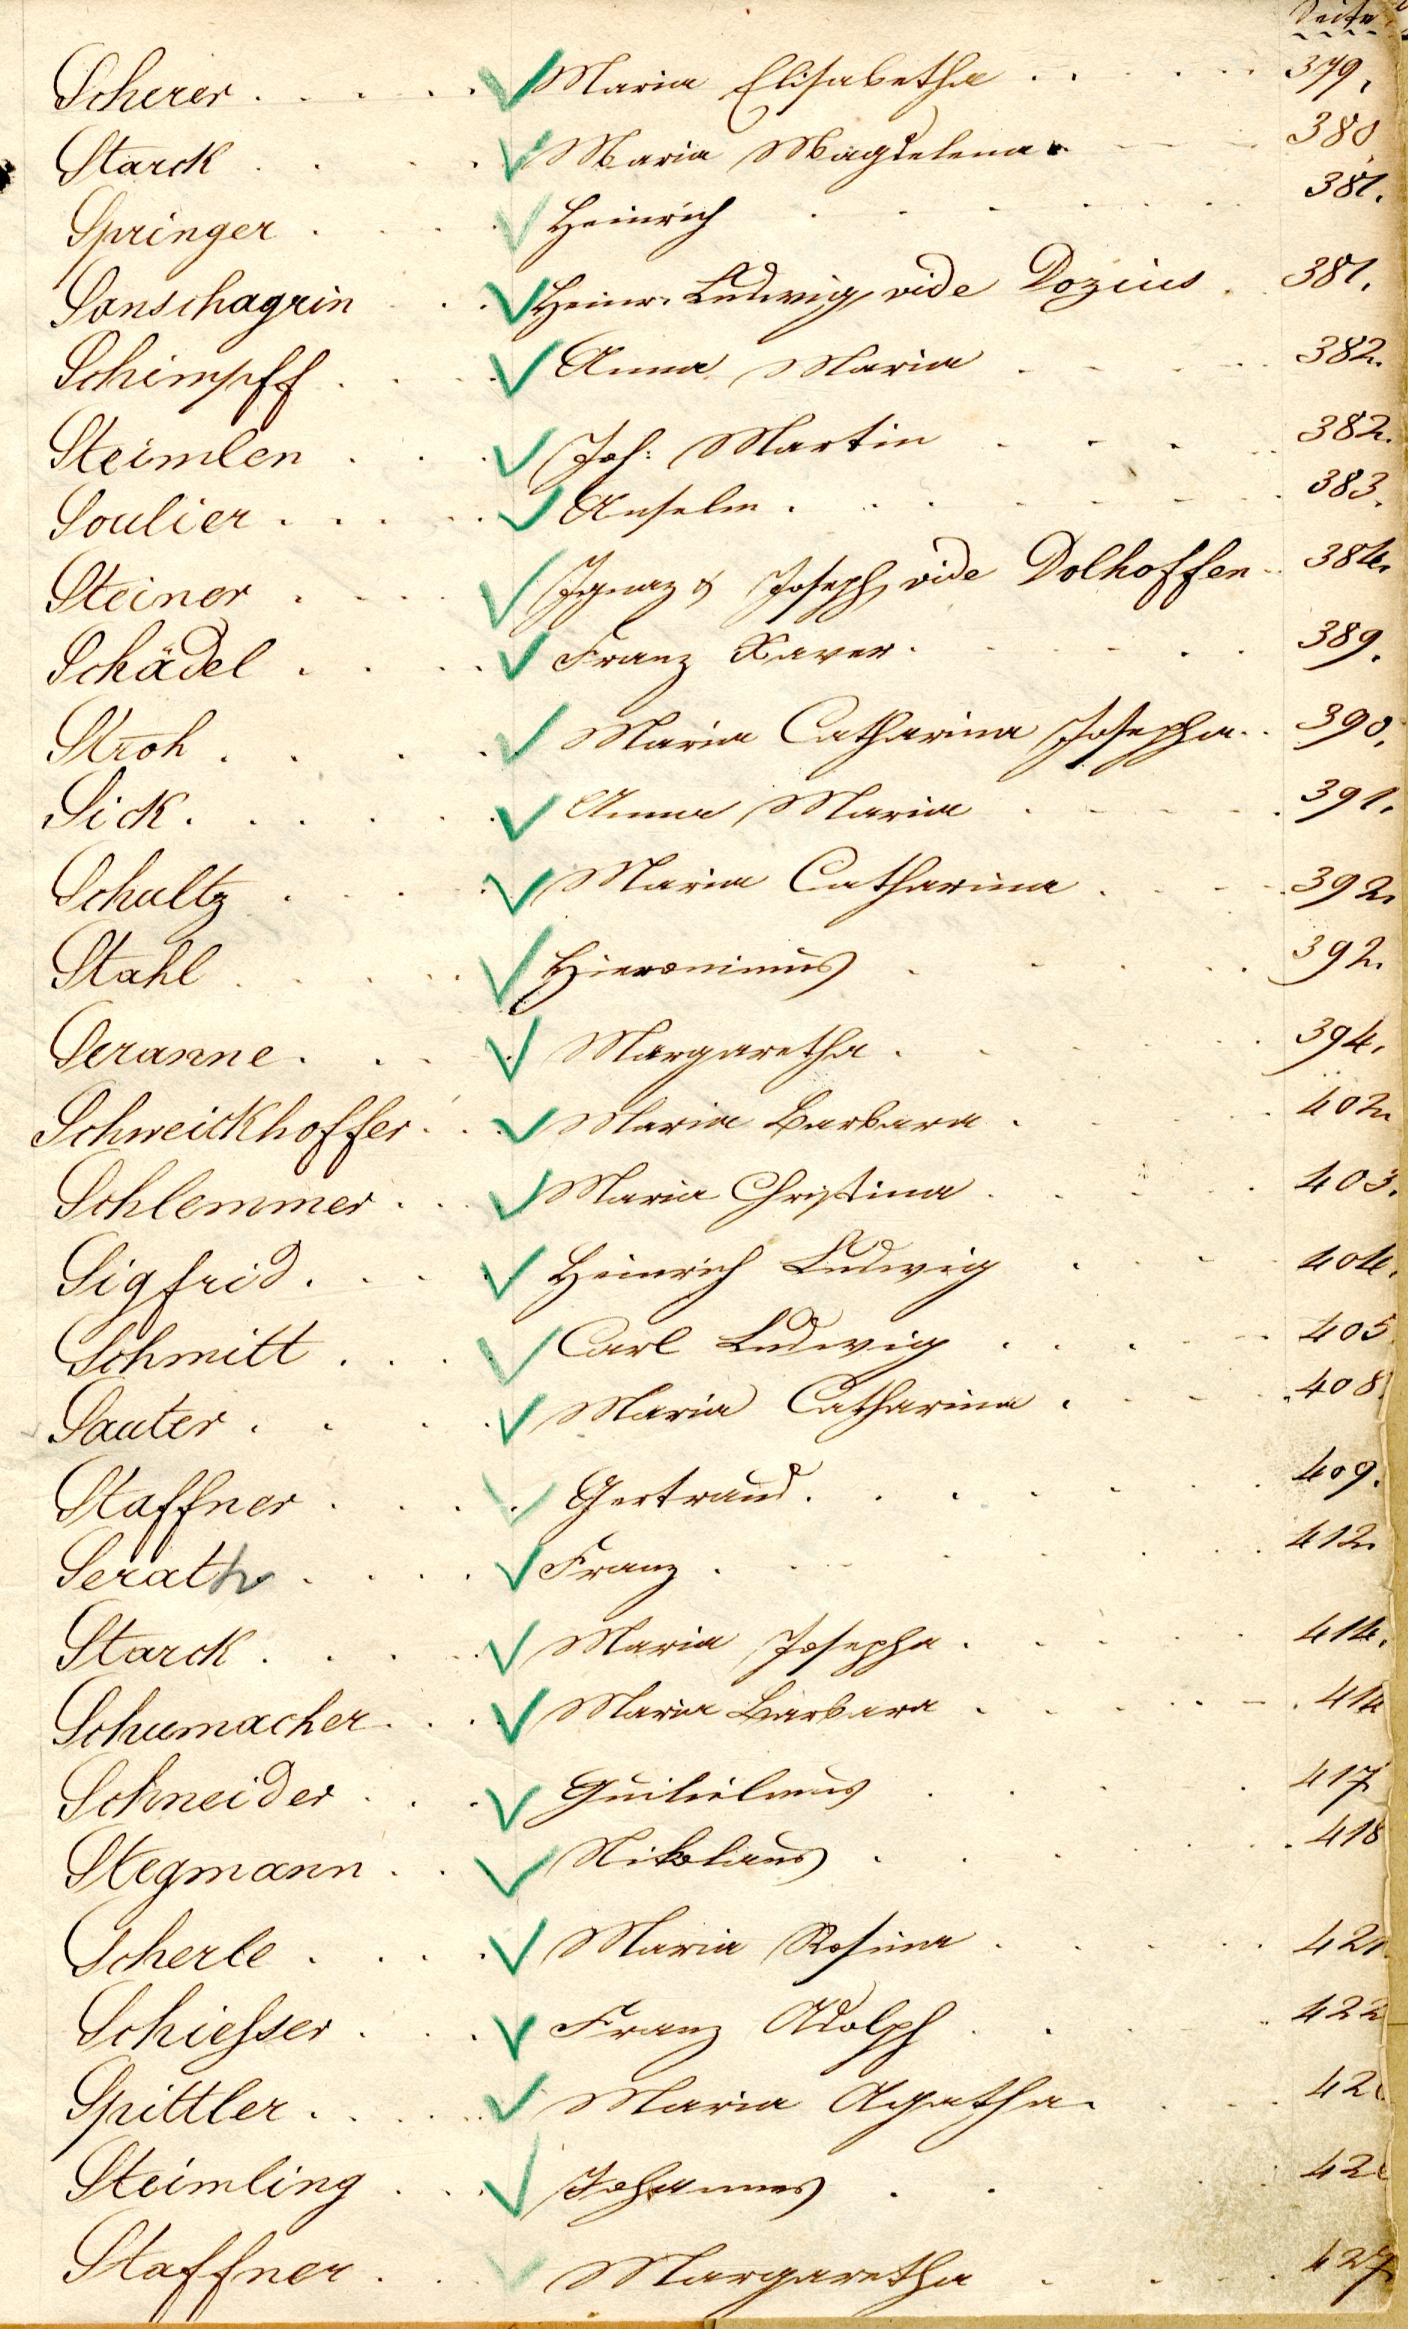 Seite
Scherer . . . . . Maria Elisabetha . . . . . 379.
Starck . . . . Maria Magdelena . . . 380
Springer . . . . Heinrich . . . . . . . 381.
Sanschagrin . . Heinr. Ludwig, vide Dozius . 381.
Schimpff . . . . Anna Maria . . . . . 382.
Steimlen . . . Joh: Martin . . . . . 382.
Soulier . . . . . Anselm . . . . . . . 383.
Steiner . . . . Ignaz & Joseph, vide Dolhoffen . 384.
Schädel . . . . Franz Xaver . . . . . . 389.
Stroh . . . . Maria Catharina Josepha . . 390.
Sick . . . . . . Anna Maria . . . . . 391.
Schultz . . . . Maria Catharina . . . . 392.
Stahl . . . . . Hieronimus . . . . . . 392.
Seranne . . . . Margaretha . . . . . . 394.
Schweickhoffer . . . Maria Barbara . . . . 402.
Schlemmer . . . Maria Christina . . . . . 403.
Sigfrid . . . . Heinrich Ludwig . . . . 404.
Schmitt . . . . Carl Ludwig . . . . . 405
Sauter . . . . Maria Catharina . . . . 408.
Staffner . . . . Gertraud . . . . . . . 409.
Serath . . . . . Franz . . . . . . . 412.
Starck . . . . Maria Josepha . . . . . 414.
Schumacher . . . . Maria Barbara . . . . . 414
Schneider . . . Guilielmus . . . . 417
Stegmann . . Nikolaus . . . . . . 418
Scherle . . . . Maria Rosina . . . . . 421
Schiesser . . . Franz Adolph . . . . . 422
Spittler . . . . Maria Agatha . . . . 42
Steimling . . . Johannes . . . 42
Staffner . . . Margaretha . . . . 427